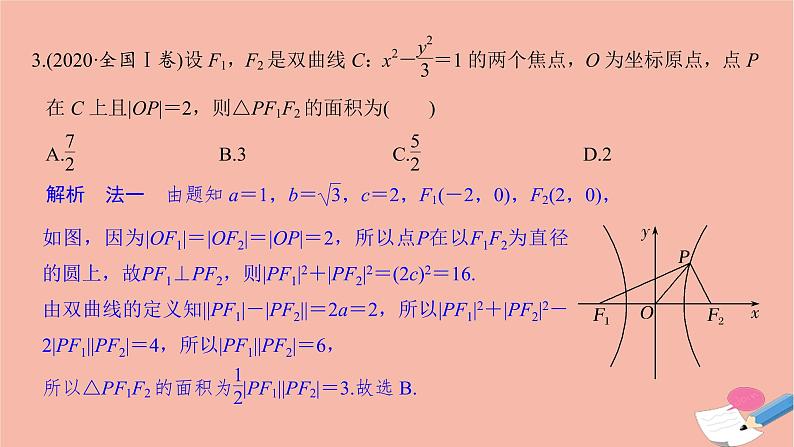 3.(2020·全国Ⅰ卷)设 F₁，F₂是双曲线 C：x²－y²/3＝1 的两个焦点，O 为坐标原点，点 P
在 C 上且|OP|＝2，则△PF₁F₂的面积为(　　)
A.7/2　B.3　C.5/2　D.2
解析　法一　由题知 a＝1，b＝√3，c＝2，F₁(－2，0)，F₂(2，0)，
如图，因为|OF₁|＝|OF₂|＝|OP|＝2，所以点P在以F₁F₂为直径
的圆上，故PF₁⊥PF₂，则|PF₁|²＋|PF₂|²＝(2c)²＝16.
由双曲线的定义知||PF₁|－|PF₂||＝2a＝2，所以|PF₁|²＋|PF₂|²－
2|PF₁||PF₂|＝4，所以|PF₁||PF₂|＝6，
所以△PF₁F₂的面积为1/2|PF₁||PF₂|＝3.故选 B.
y
P
F₁ O F₂ x